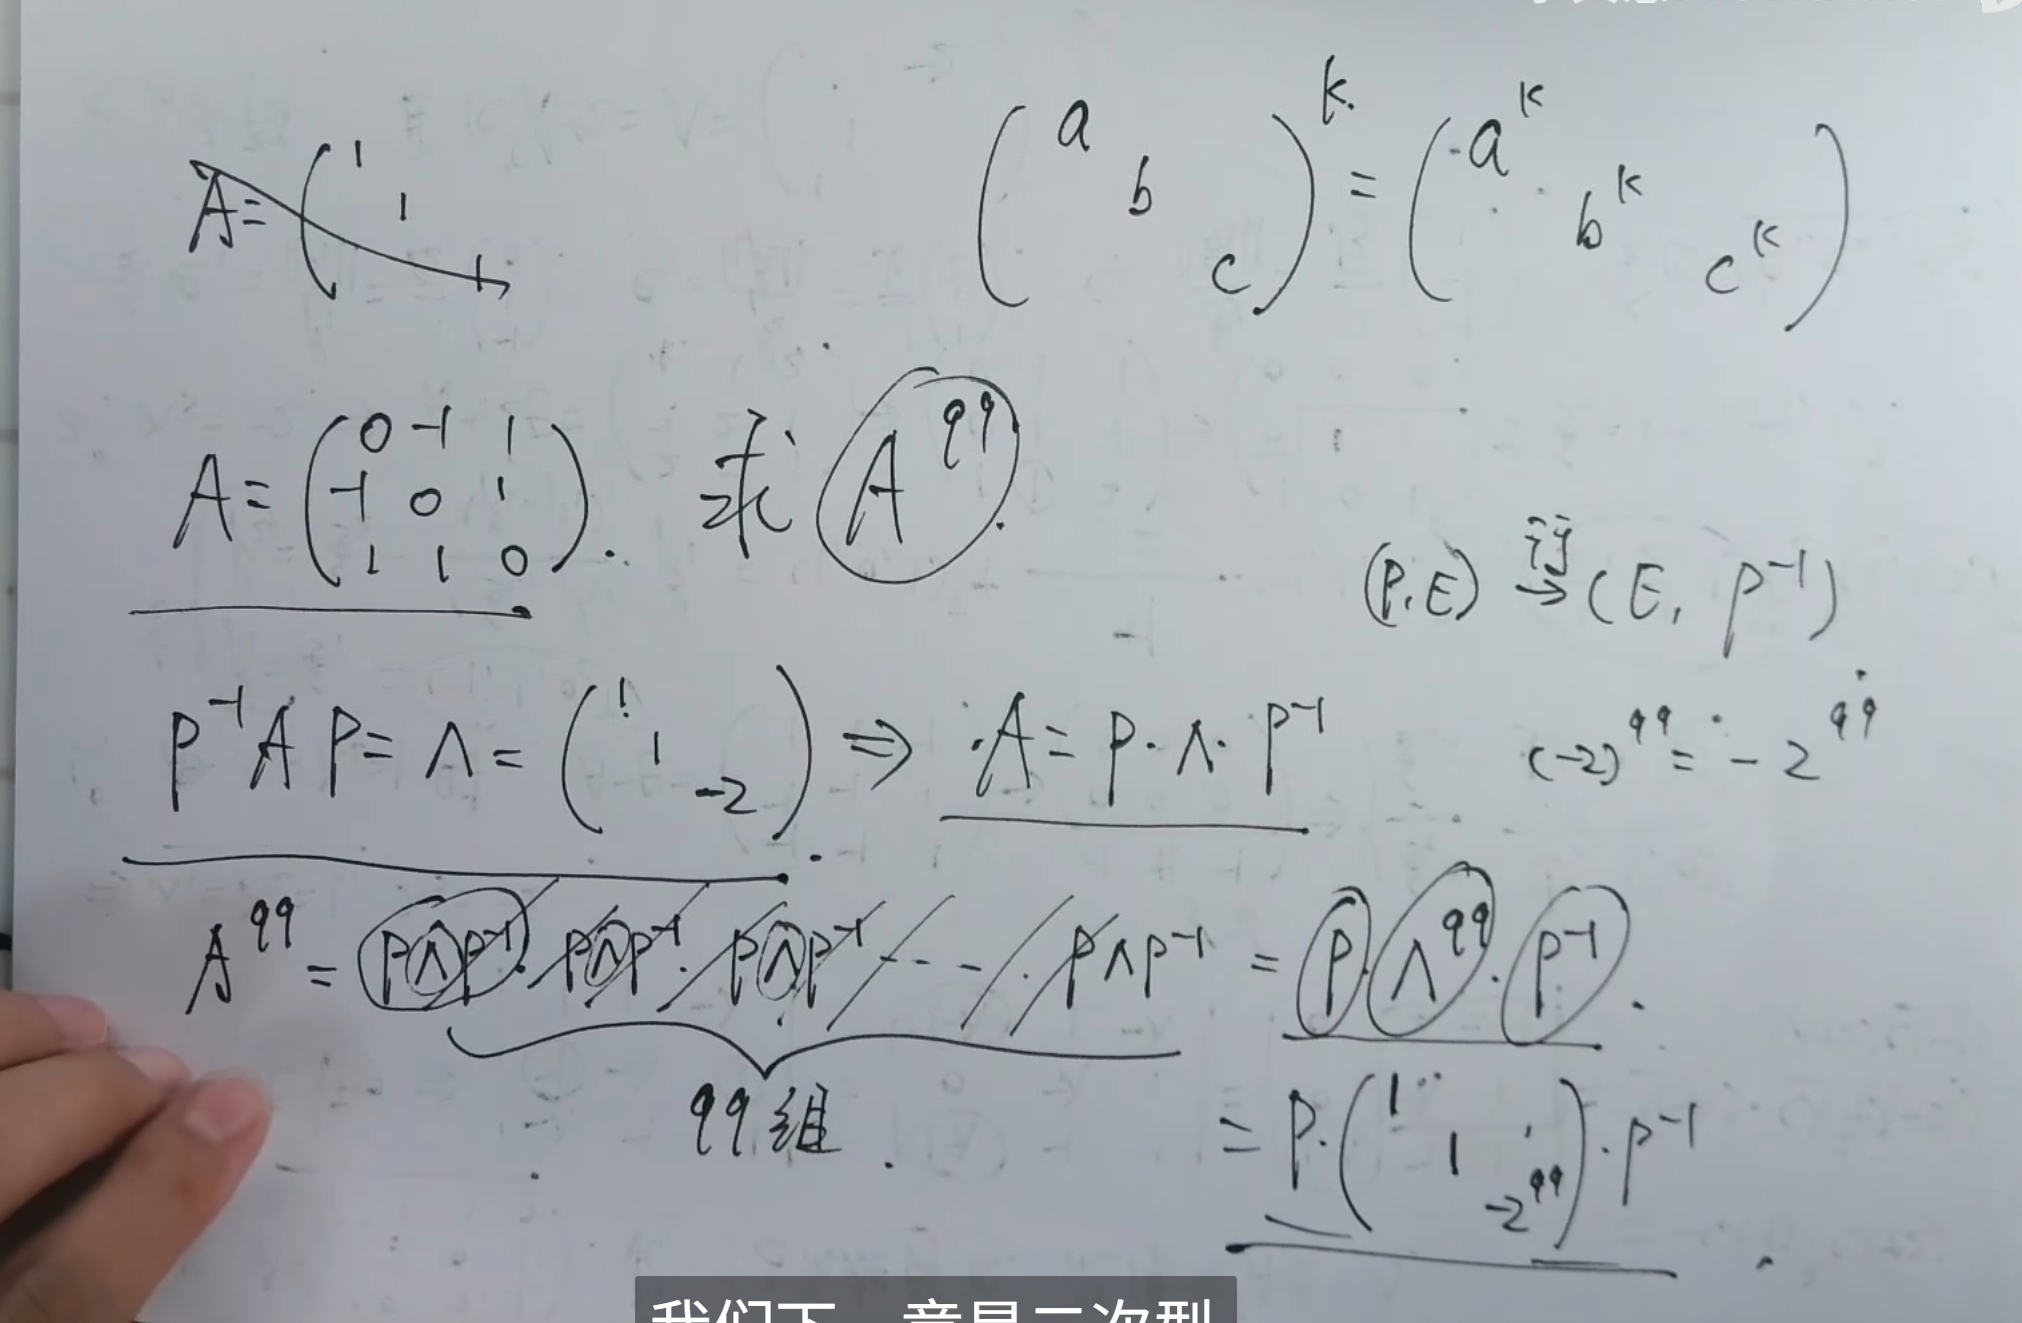 A = ( 1 1 1
( a b c )^k = ( a^k b^k c^k )
A = ( 0 -1 1
-1 0 1
1 1 0 ). 求 A^99.
(P, E) 行→ (E, P^-1)
P^-1 A P = Λ = ( 1 1 -2 ) ⇒ A = P·Λ·P^-1
(-2)^99 = -2^99
A^99 = PΛP^-1 · PΛP^-1 · PΛP^-1 ---- · PΛP^-1 = P·Λ^99·P^-1.
99组.
= P·( 1 1 -2^99 )·P^-1
我们下一章是二次型